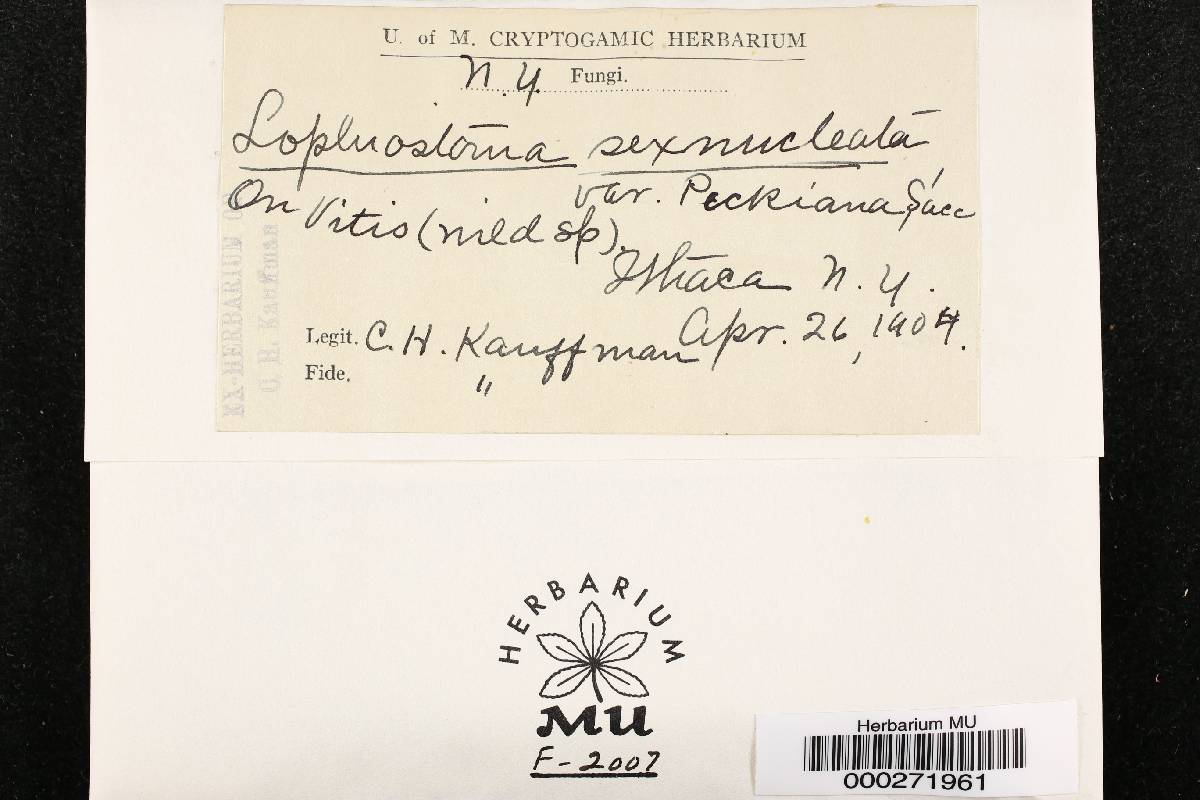 U. of M. CRYPTOGAMIC HERBARIUM
N. Y. Fungi.
Lophiostoma sexnucleata
var. Peckiana Sacc
On Vitis (wild sp).
Ithaca N. Y.
Apr. 26, 1904.
Legit. C. H. Kauffman
Fide. "
EX-HERBARIUM OF
C. H. Kauffman
HERBARIUM
MU
F-2007
Herbarium MU
000271961